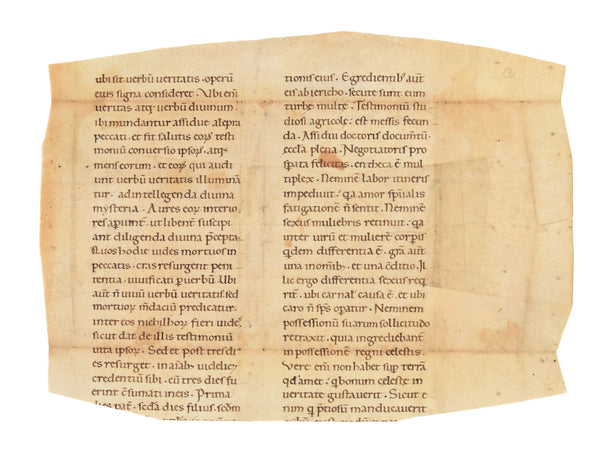 ubi sit verbũ veritatis · operũ
eius signa consideret · Ubi em̃
veritas atq; verbũ divinum ·
ibi mundantur assidue a lepra
peccati · et fit salutis eoꝝ testi
monium conversio ipsoꝝ · atq;
mens eorum · et eoꝝ qui audi
unt verbũ veritatis illumina
tur · ad intellegenda divina
mysteria · Aures eoꝝ interio
res apiunt · ut libent suscipi
ant diligenda divina p̃cepta ·
Quos hodie vides mortuos in
peccatis · cras resurgent peni
tentia · vivificati p̱ verbũ · Ubi
aut̃ ñ vivũ verbũ veritatis sed
mortuoꝝ m̃daciũ predicatur ·
inter eos nichil hoꝝ fieri vide
sicut dat de illis testimoniũ
vita ipsoꝝ · Sed et post tres di
es resurget · in aĩab; videlicet
credentiũ sibi · cũ tres dies fu
erint c̃sumati in eis · Prima
dies pat̃ · sc̃da dies filius · sc̃dm
tionis eius · Egredientib; aut̃
eis ab iericho · secute sunt eum
turbe multe · Testimoniũ stu
diosi agricole · est messis fecun
da · Assidui doctoris docum̃tũ
eccla plena · Negotiatoris pro
felicitas · en theca ẽ mul
tiplex · Neminẽ labor itineris
impedivit · qa amor sp̃ualis
fatigationẽ ñ sentit · Neminẽ
sexus muliebris retinuit · qa
inter virũ et mulierẽ corp̱is
qdem differentia ẽ · gr̃a aut̃
una in om̃ib; · et una c̃ditio · Il
lic ergo differentia sexus req
rit̃ · ubi carnat causa ẽ · et ubi
caro ñ sp̃s opatur · Neminem
possessionũ suarum sollicitudo
retraxit · quia ingrediebant̃
in possessionẽ regni celestis ·
Vere em̃ non habet sup̱ terrã
qd amet · q bonum celeste in
veritate gustaverit · Sicut e
nim q p̃tiosũ manducaverit